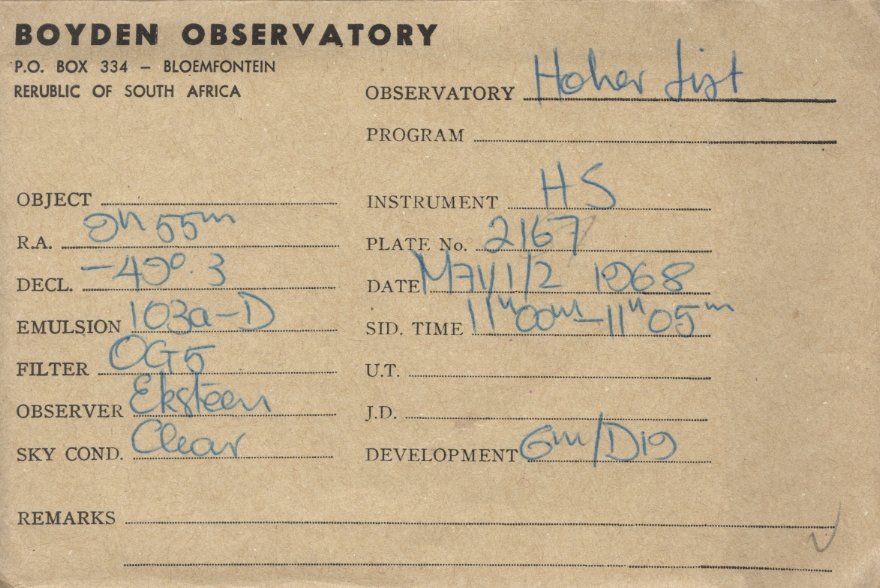 BOYDEN OBSERVATORY
P.O. BOX 334 – BLOEMFONTEIN
RERUBLIC OF SOUTH AFRICA
OBSERVATORY Hoher List
PROGRAM
OBJECT
INSTRUMENT HS
R.A. 9h 55m
PLATE No. 2167
DECL. -49°.3
DATE May 1/2 1968
EMULSION 103a-D
SID. TIME 11h00m-11h05m
FILTER OG5
U.T.
OBSERVER Eksteen
J.D.
SKY COND. Clear
DEVELOPMENT 6m/D19
REMARKS